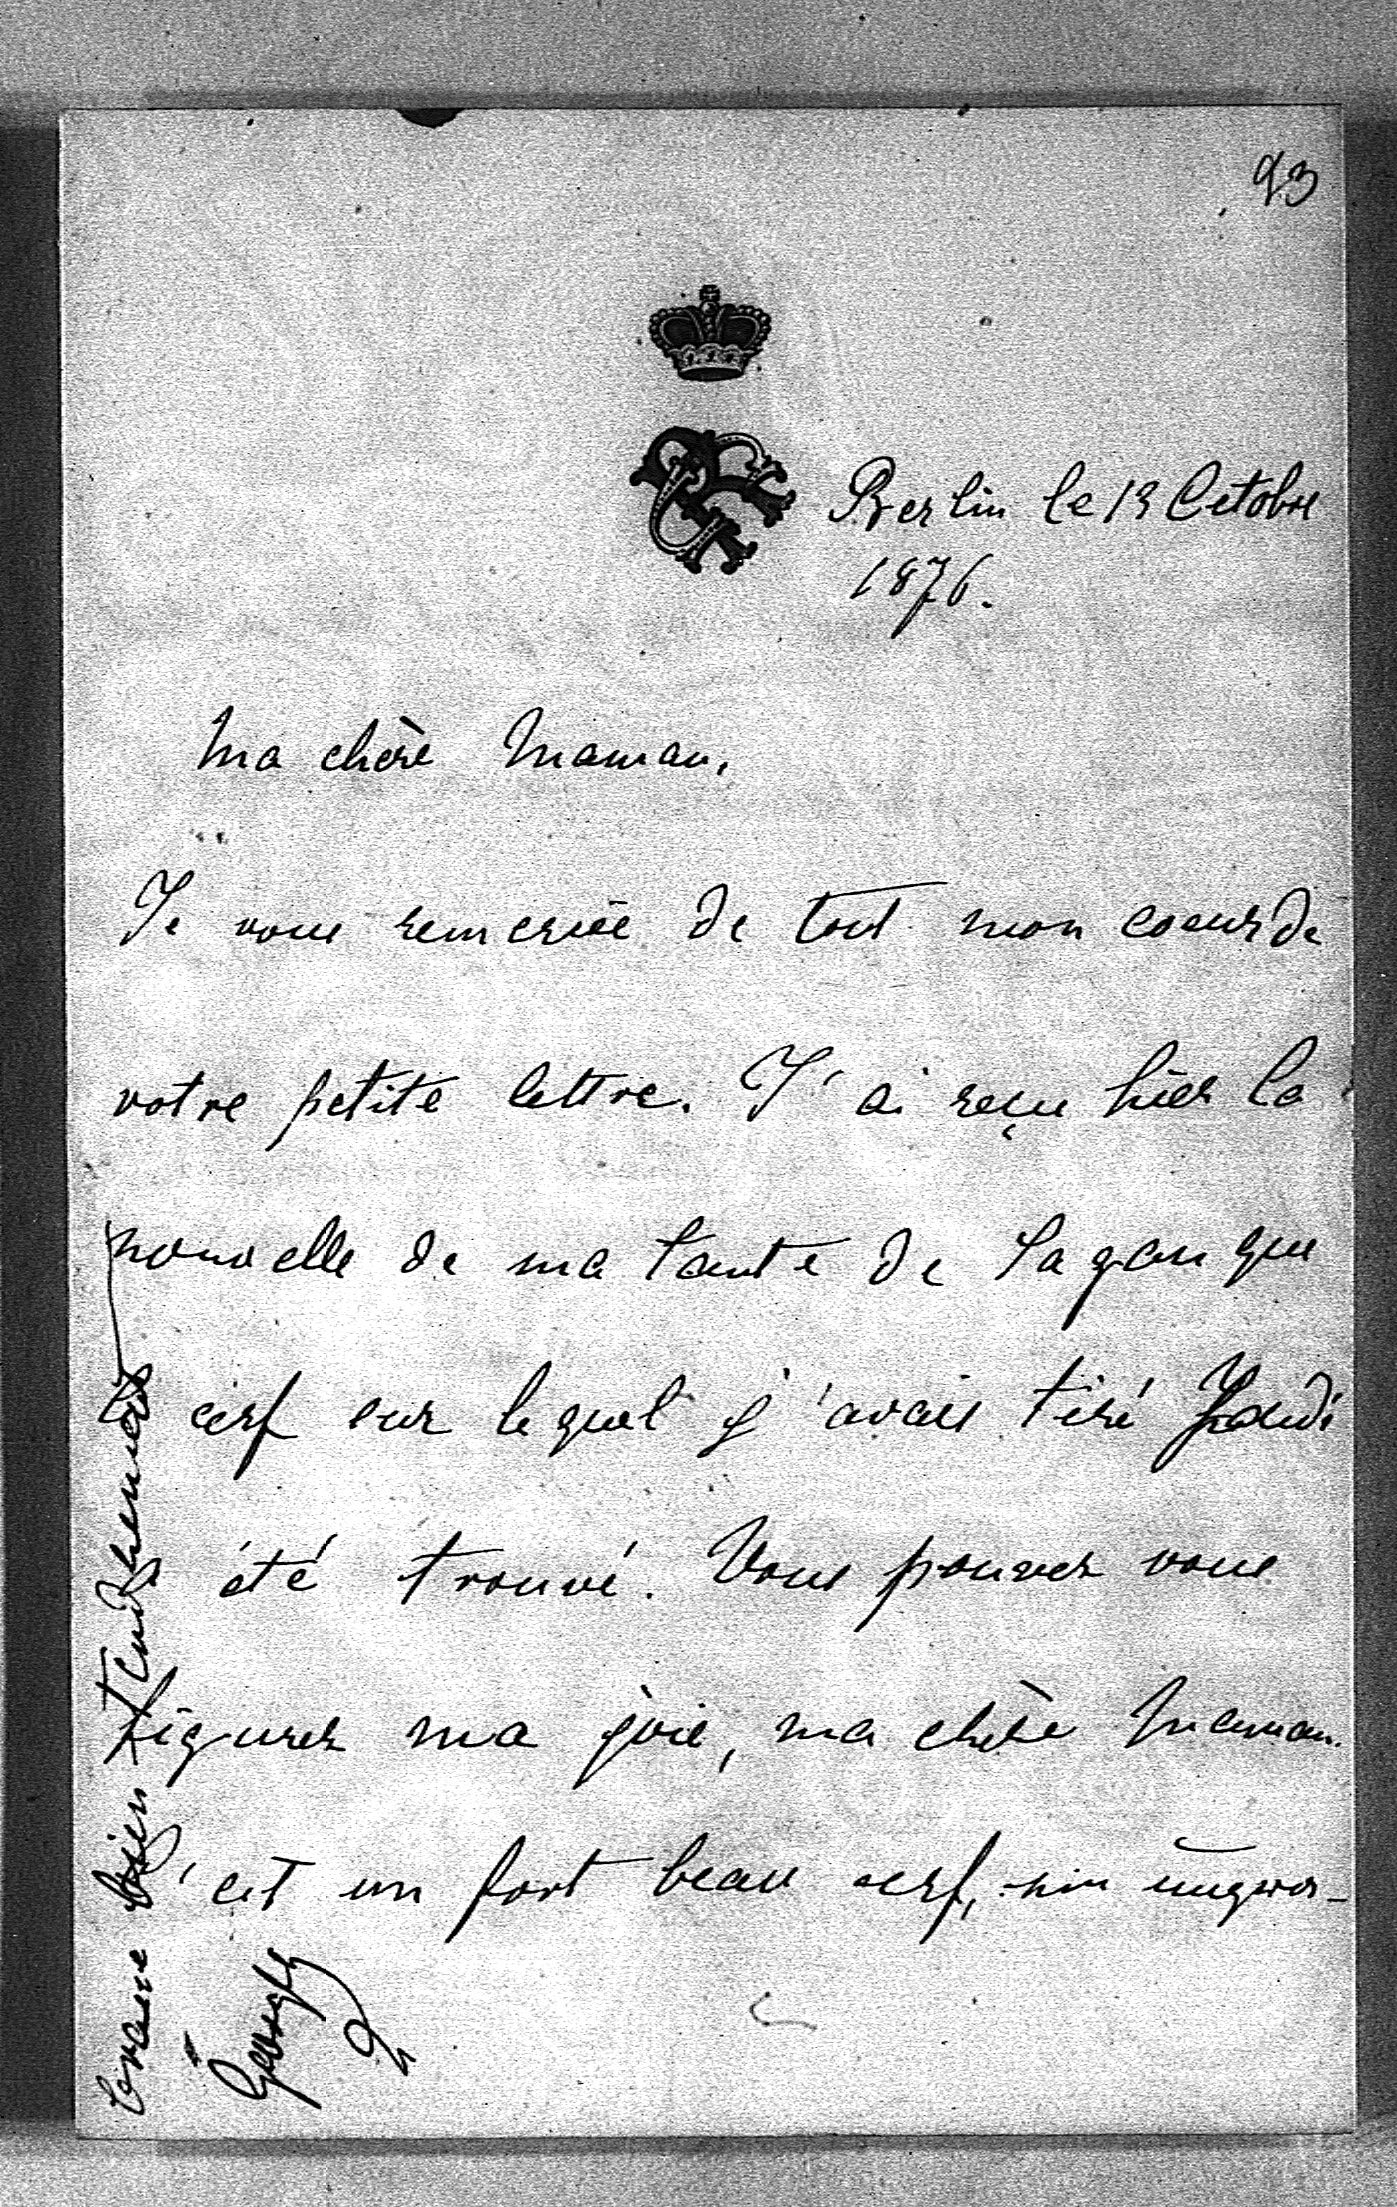 93
Berlin le 13 Octobre
1876.
Ma chère Maman,
Je vous remercie de tout mon coeur de
votre petite lettre. J'ai reçu hier la
nouvelle de ma tante de Sagan que
le cerf sur lequel j'avais tiré Jeudi
a été trouvé. Vous pouvez vous
figurer ma joie, ma chère Maman.
C'est un fort beau cerf, ein ungera-
bien tendrement